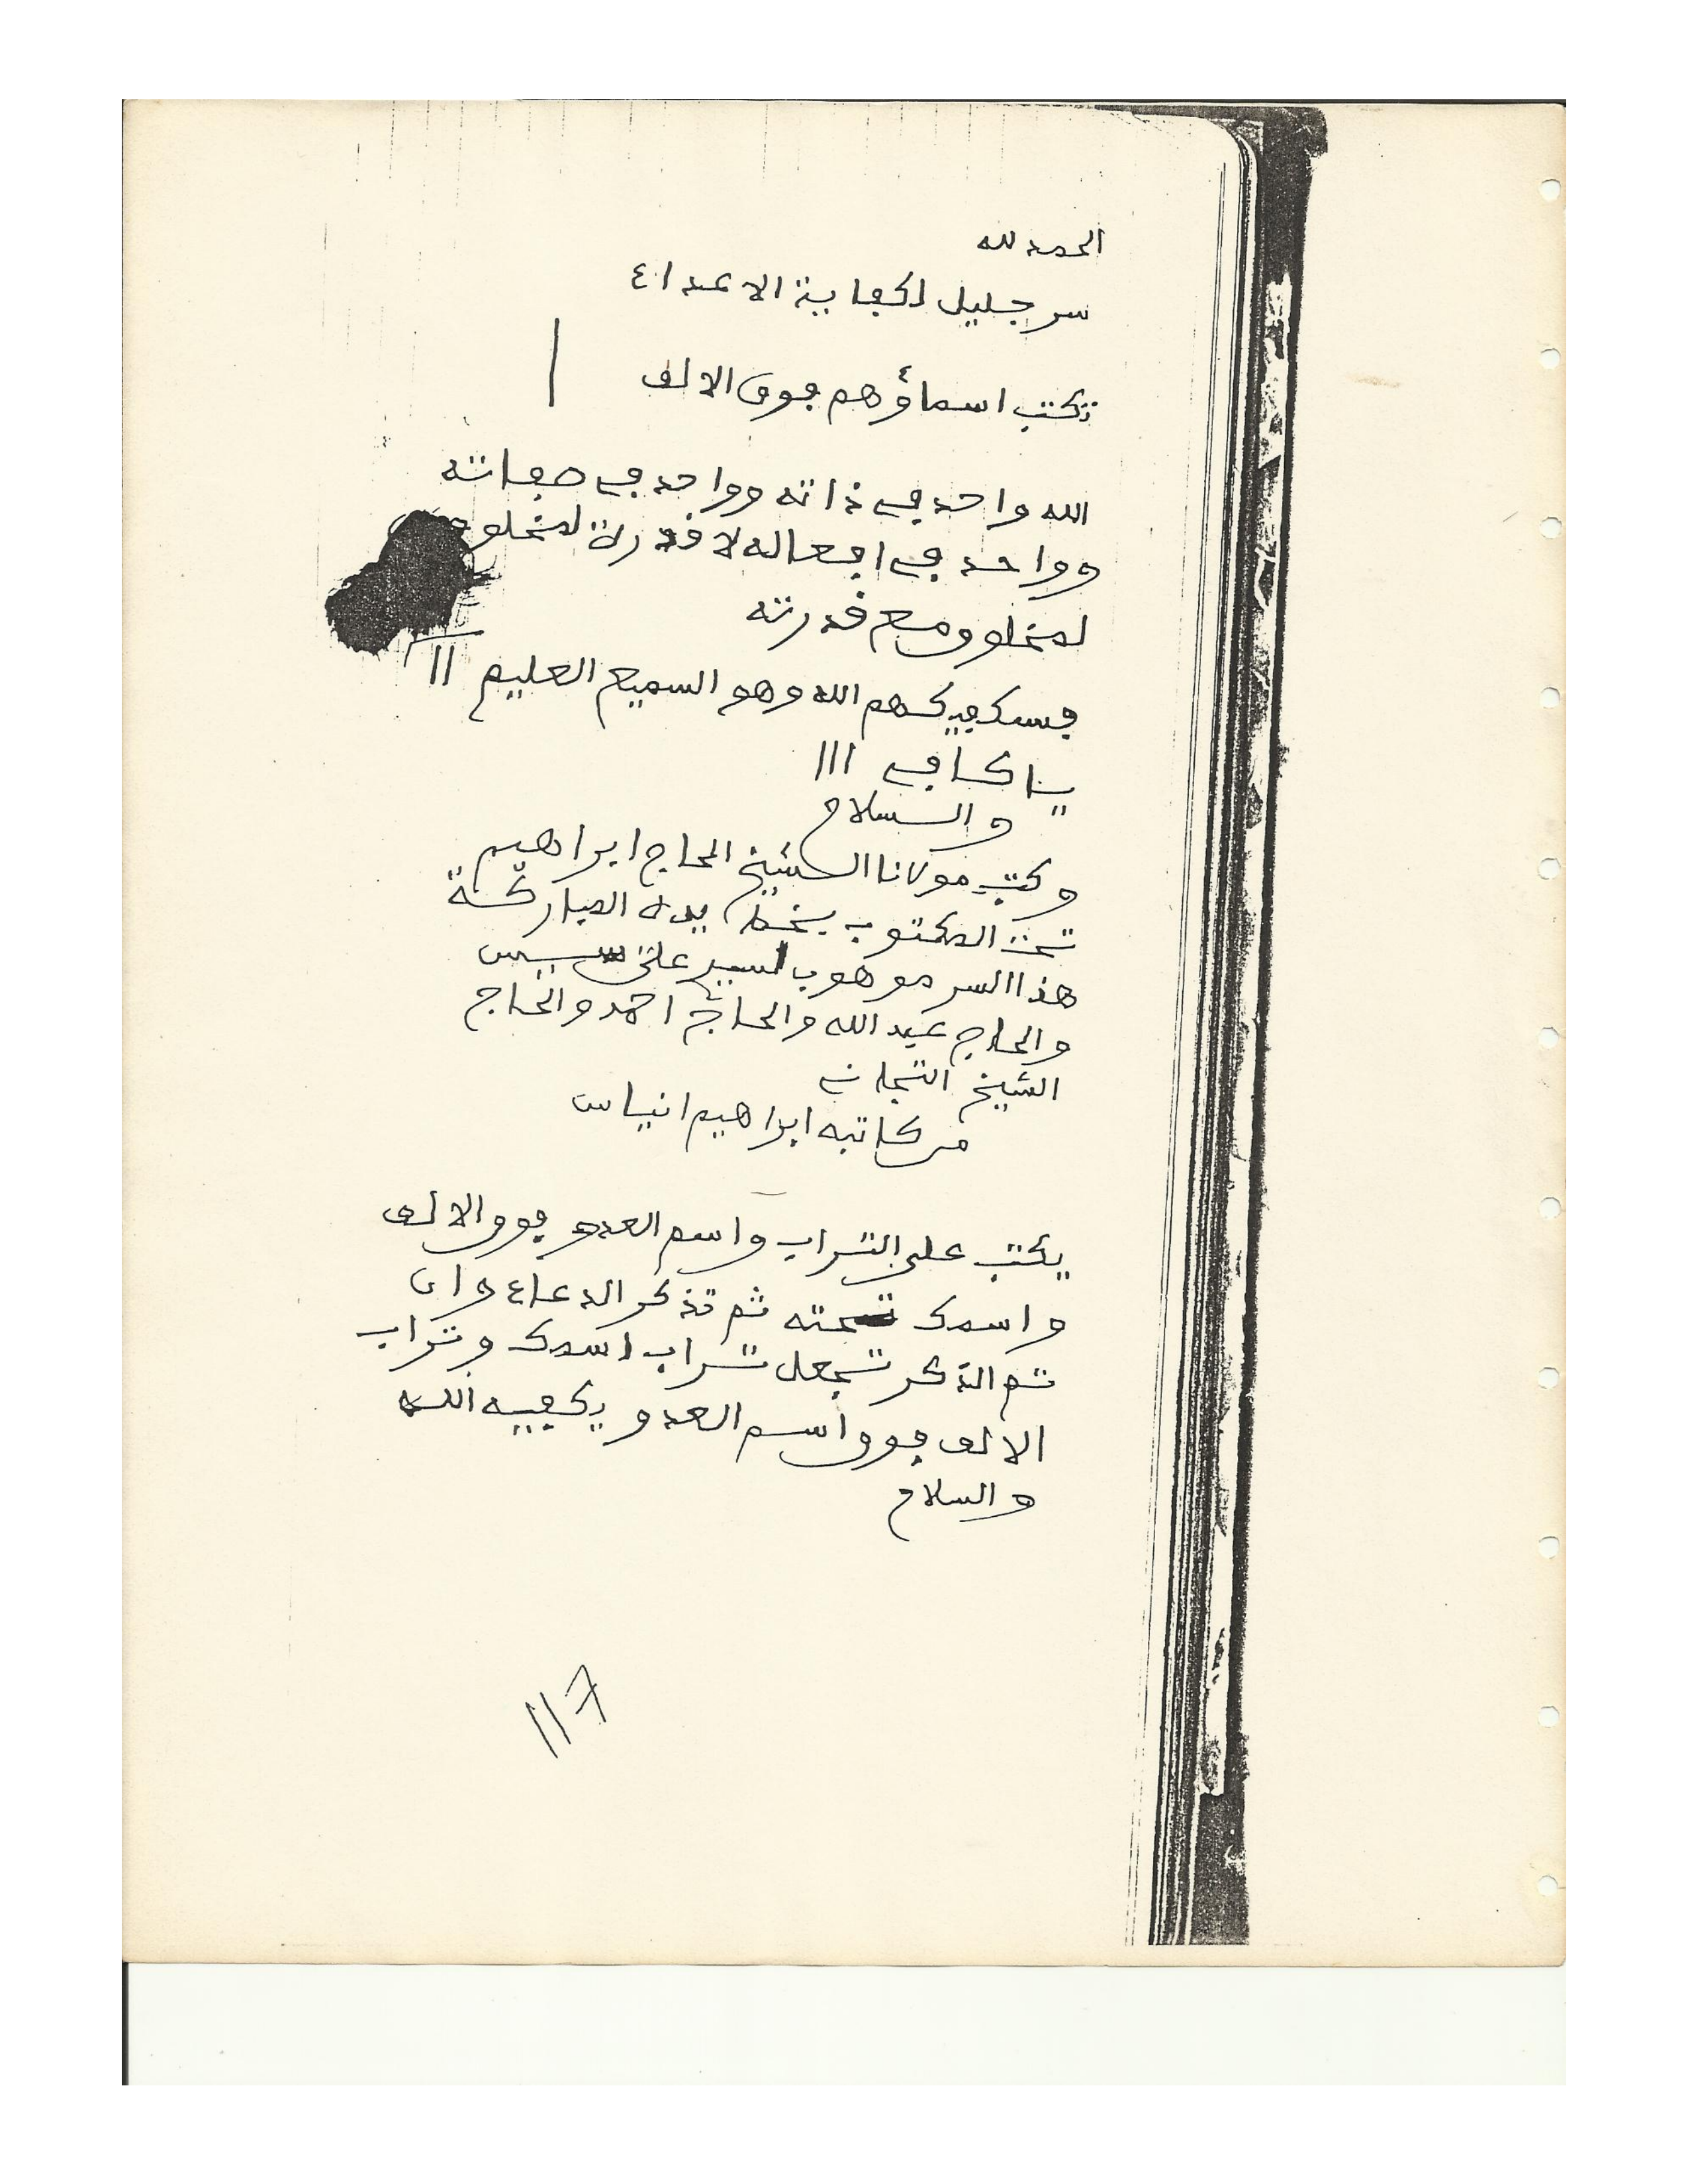 الحمد لله
سر جليل لكفاية الاعداء
تكتب اسماؤهم فوق الالف ا
الله واحد في ذاته وواحد في صفاته
وواحد في افعاله لا قدرة لمخلوق
لمخلوق مع قدرته
فسيكفيكهم الله وهو السميع العليم ١١
يا كافي ١١١
والسلام
وكتب مولانا الشيخ الحاج ابراهيم
تحت المكتوب بخط يده المباركة
هذا السر موهوب لسيد علي سيس
والحاج عبد الله والحاج احمد والحاج
الشيخ التجاني
من كاتبه ابراهيم انياس
يكتب على التراب واسم العدو فوق الالف
واسمك تحته ثم تذكر الدعاء وان
تم الذكر تجعل تراب اسمك وتراب
الالف فوق اسم العدو يكفيه الله
والسلام
117